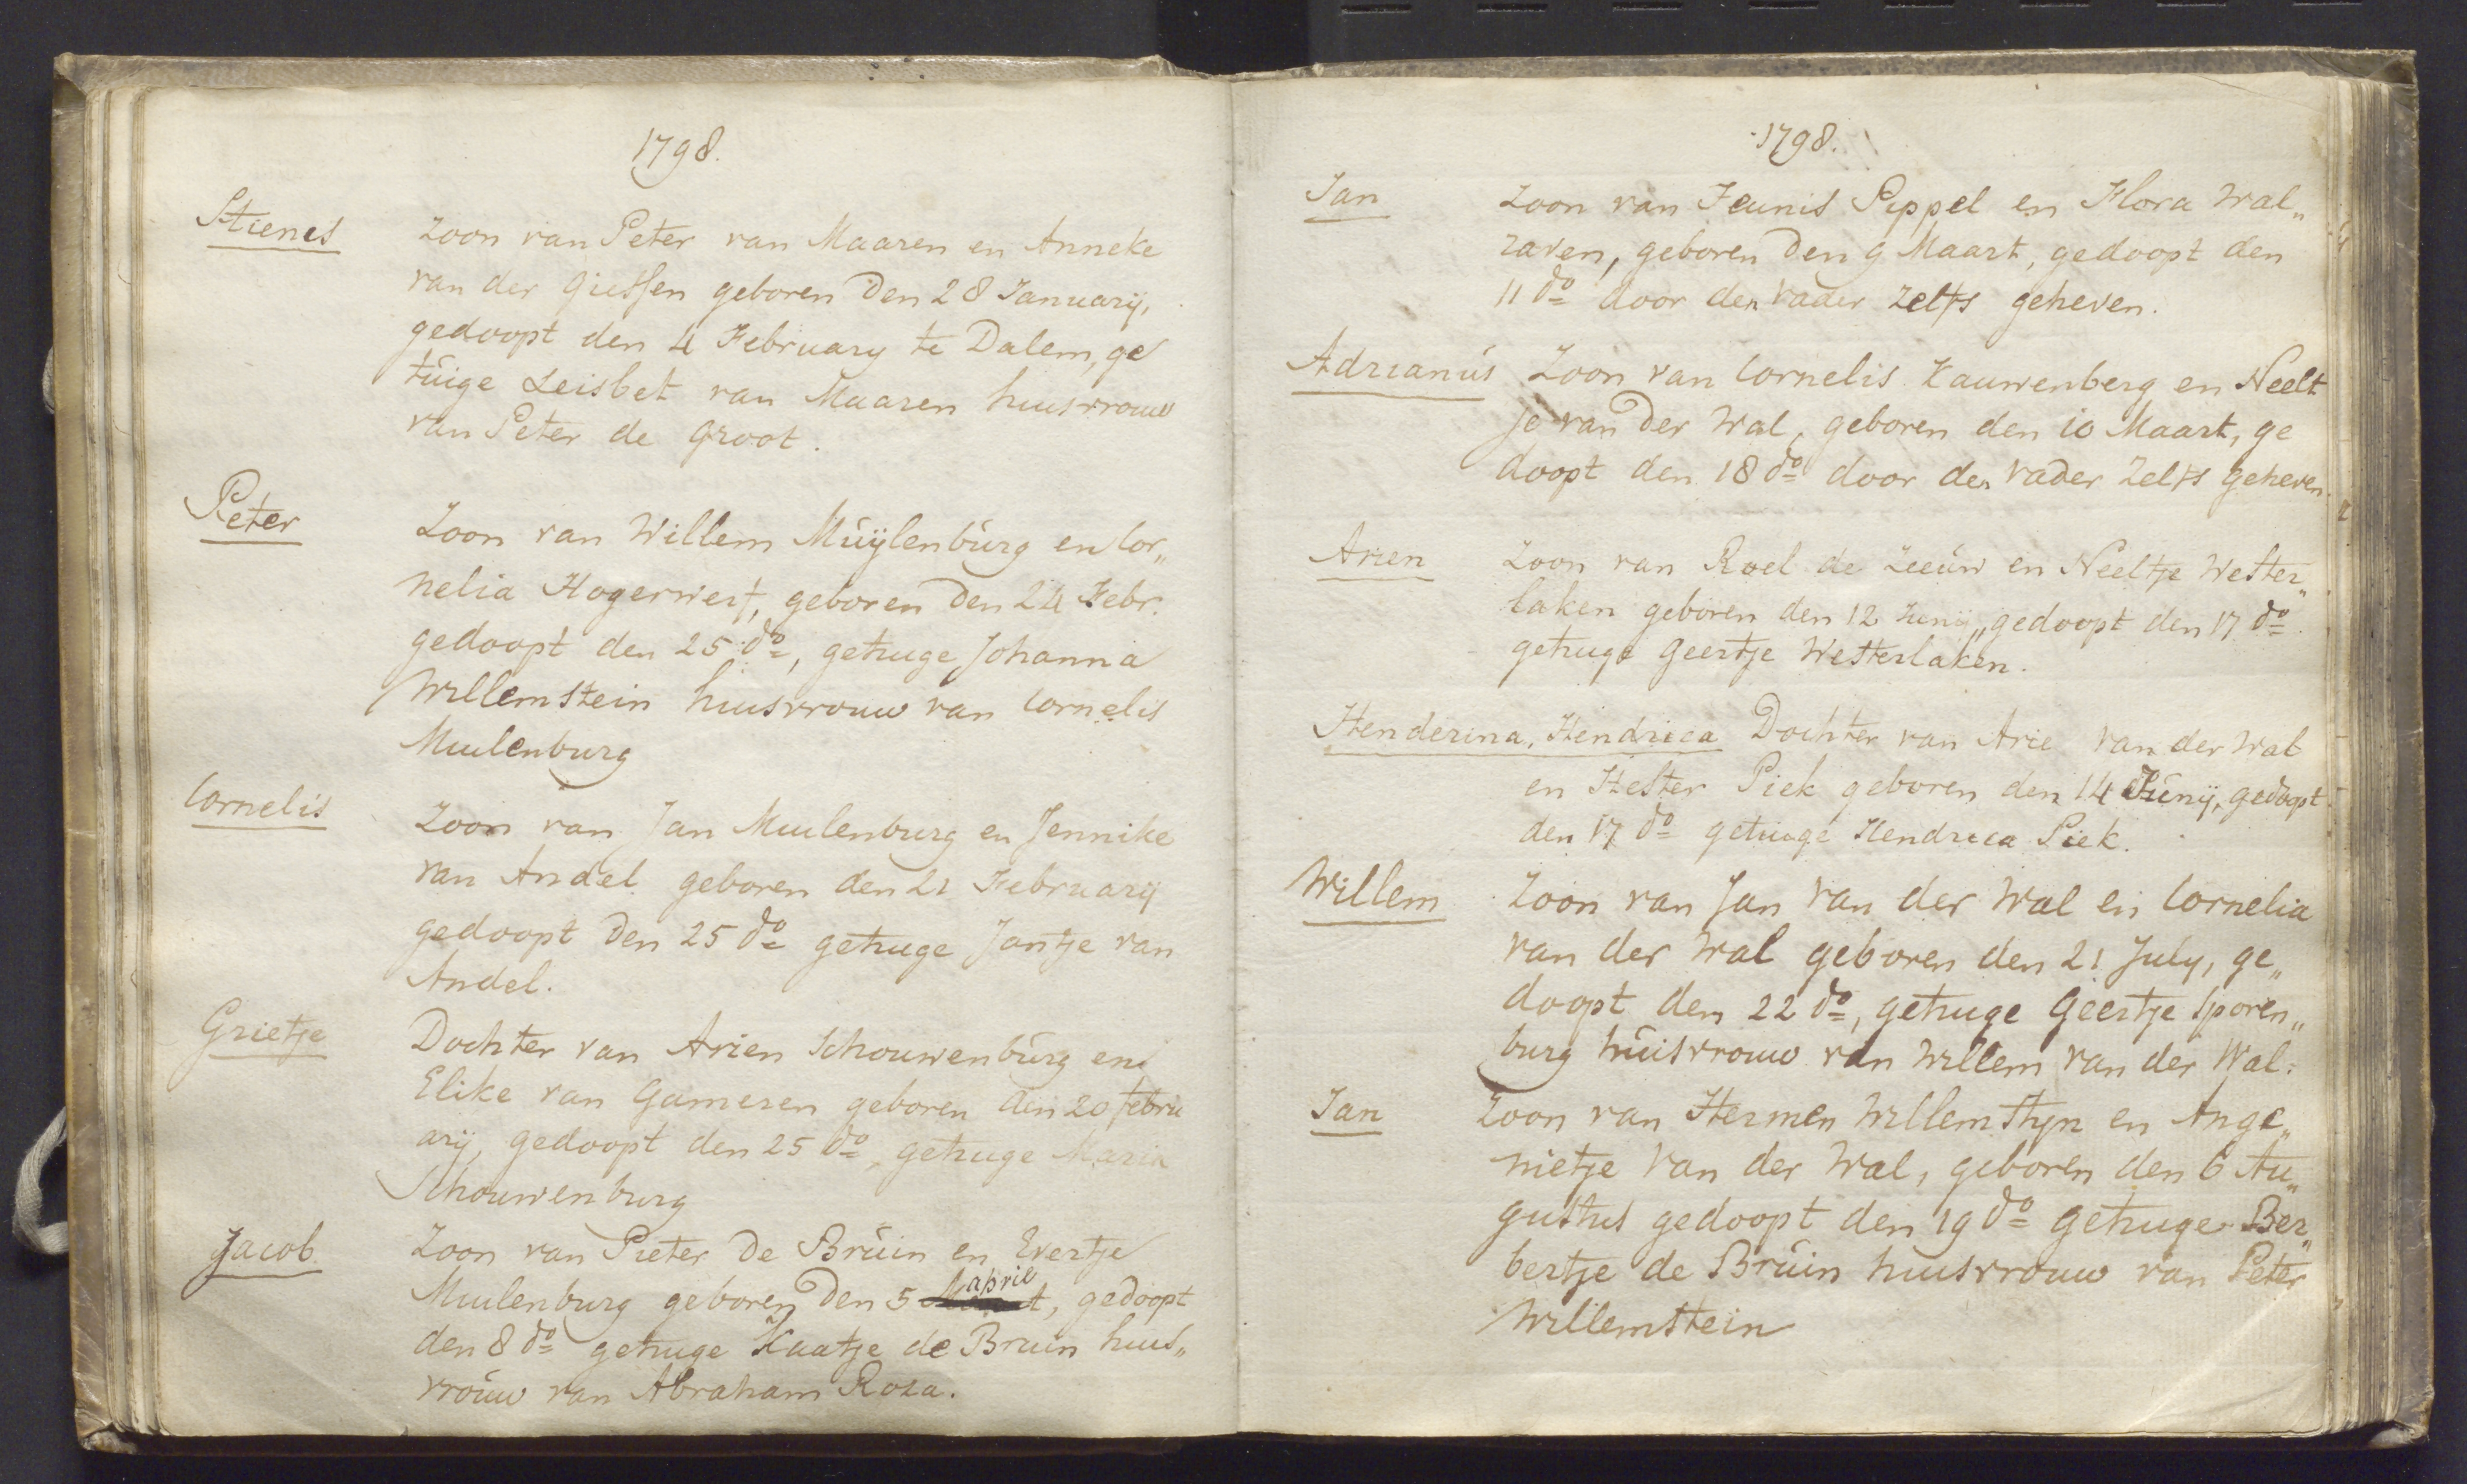 1798.
Stienes Zoon van Peter van Maaren en Anneke
van der Giessen geboren den 28 January,
gedoopt den 4 February te Dalem, ge
tuige Leisbet van Maaren huisvrouw
van Peter de Groot.
Peter Zoon van Willem Muÿlenburg en Cor„
nelia Hogerwerf, geboren den 24 Febr.
gedoopt den 25 do, getuige Johanna
Willemstein huisvrouw van Cornelis
Muilenburg
Cornelis Zoon van Jan Muilenburg en Jennike
van Andel geboren den 21 February
gedoopt den 25 do getuige Jantje van
Andel.
Grietje Dochter van Arien Schouwenburg en
Elike van Gameren geboren den 20 febru
arij, gedoopt den 25 do, getuige Maria
Schouwenburg
Jacob. Zoon van Pieter de Bruin en Evertje
april
Muilenburg geboren den 5 Maart, gedoopt
den 8 do getuige Kaatje de Bruin huis„
vrouw van Abraham Roza.
1798.
Jan Zoon van Teunis Pippel en Flora Wal„
raven, geboren den 9 Maart, gedoopt den
11 do door den vader zelfs geheven.
Adrianus Zoon van Cornelis Kauwenberg en Neelt
je van der Wal, geboren den 10 Maart, ge
doopt den 18 do door den vader zelfs geheven.
Arien Zoon van Roel de Zeeuw en Neeltje Wester„
laken geboren den 12 Junij, gedoopt den 17 do.
getuige Geertje Westerlaken.
Henderina, Hendrica Dochter van Arie van der Wal
en Hester Piek geboren den 14 Junij, gedoopt
den 17 do getuige Hendrica Piek.
Willem Zoon van Jan van der Wal en Cornelia
van der Wal geboren den 21 July, ge„
doopt den 22 do, getuige Geertje Sporen„
burg huisvrouw van Willem van der Wal.
Jan Zoon van Hermen Willemstyn en Ange„
nietje van der Wal, geboren den 6 Au„
gustus gedoopt den 19 do getuige Ber„
bertje de Bruin huisvrouw van Peter
Willemstein